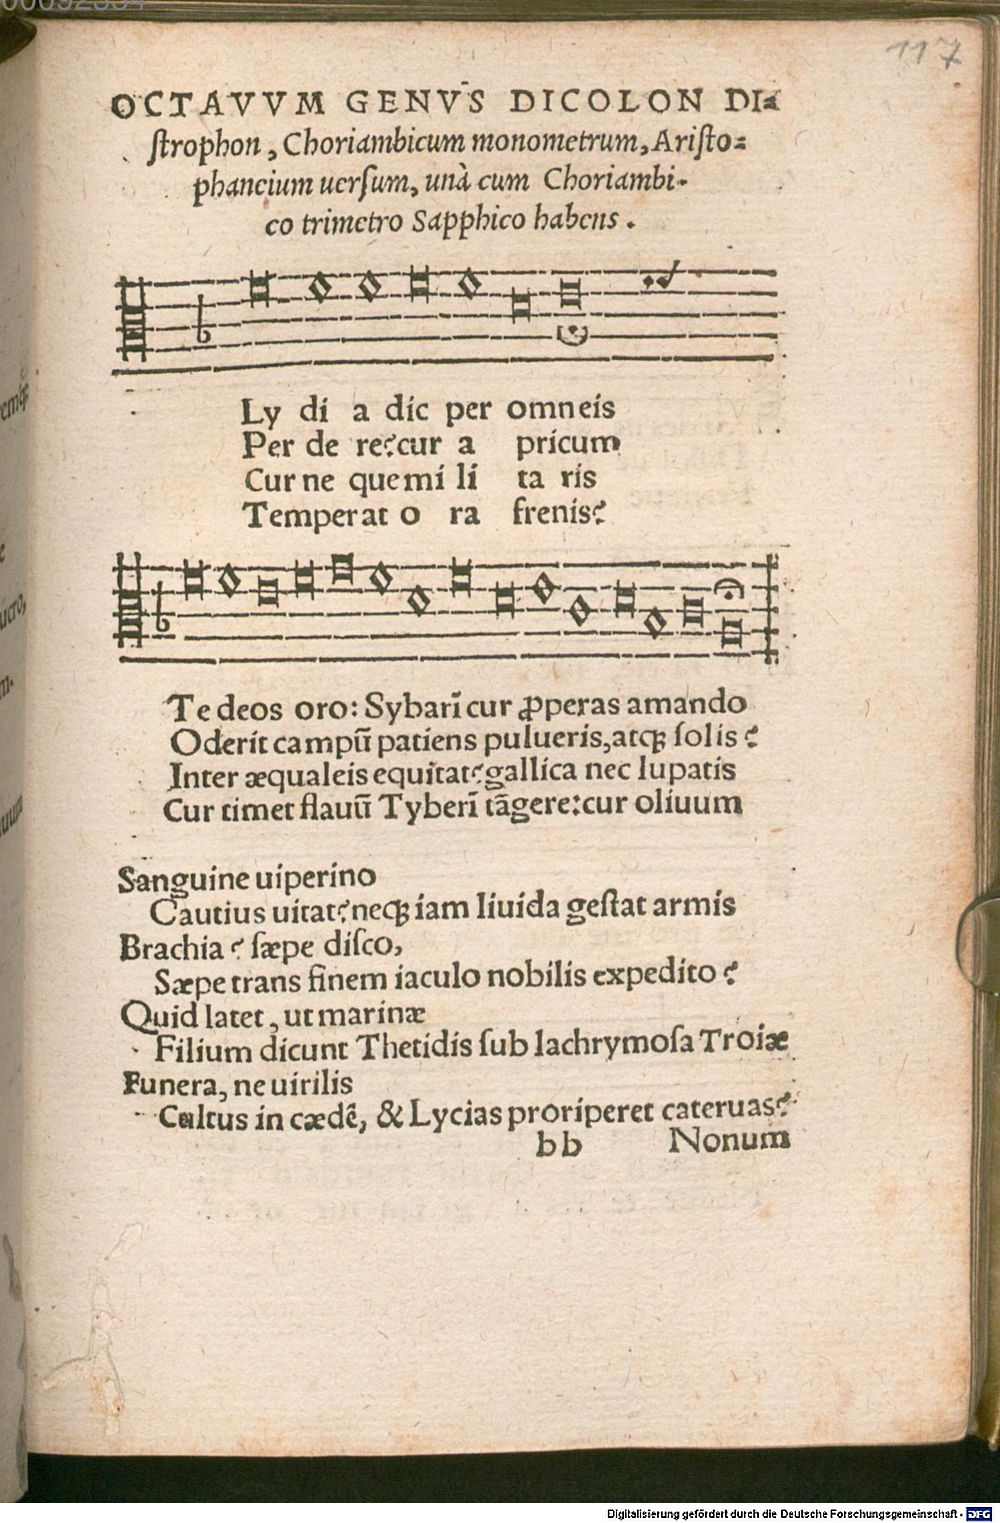 117
OCTAVVM GENVS DICOLON DI-
ſtrophon, Choriambicum monometrum, Ariſto-
phancium uerſum, unà cum Choriambi-
co trimetro Sapphico habens.
Ly di a dic per omneis
Per de re? cur a pricum
Cur ne que mi li ta ris
Temperat o ra frenis?
Te deos oro: Sybarī cur ꝓperas amando
Oderit campū patiens pulueris, atq; ſolis?
Inter æqualeis equitat? gallica nec lupatis
Cur timet flauū Tyberī tāgere: cur oliuum
Sanguine uiperino
Cautius uitat? neq; iam liuida geſtat armis
Brachia? ſæpe diſco,
Sæpe trans finem iaculo nobilis expedito?
Quid latet, ut marinæ
Filium dicunt Thetidis ſub lachrymoſa Troiæ
Funera, ne uirilis
Cultus in cædē, & Lycias proriperet cateruas?
bb Nonum
Digitalisierung gefördert durch die Deutsche Forschungsgemeinschaft - DFG